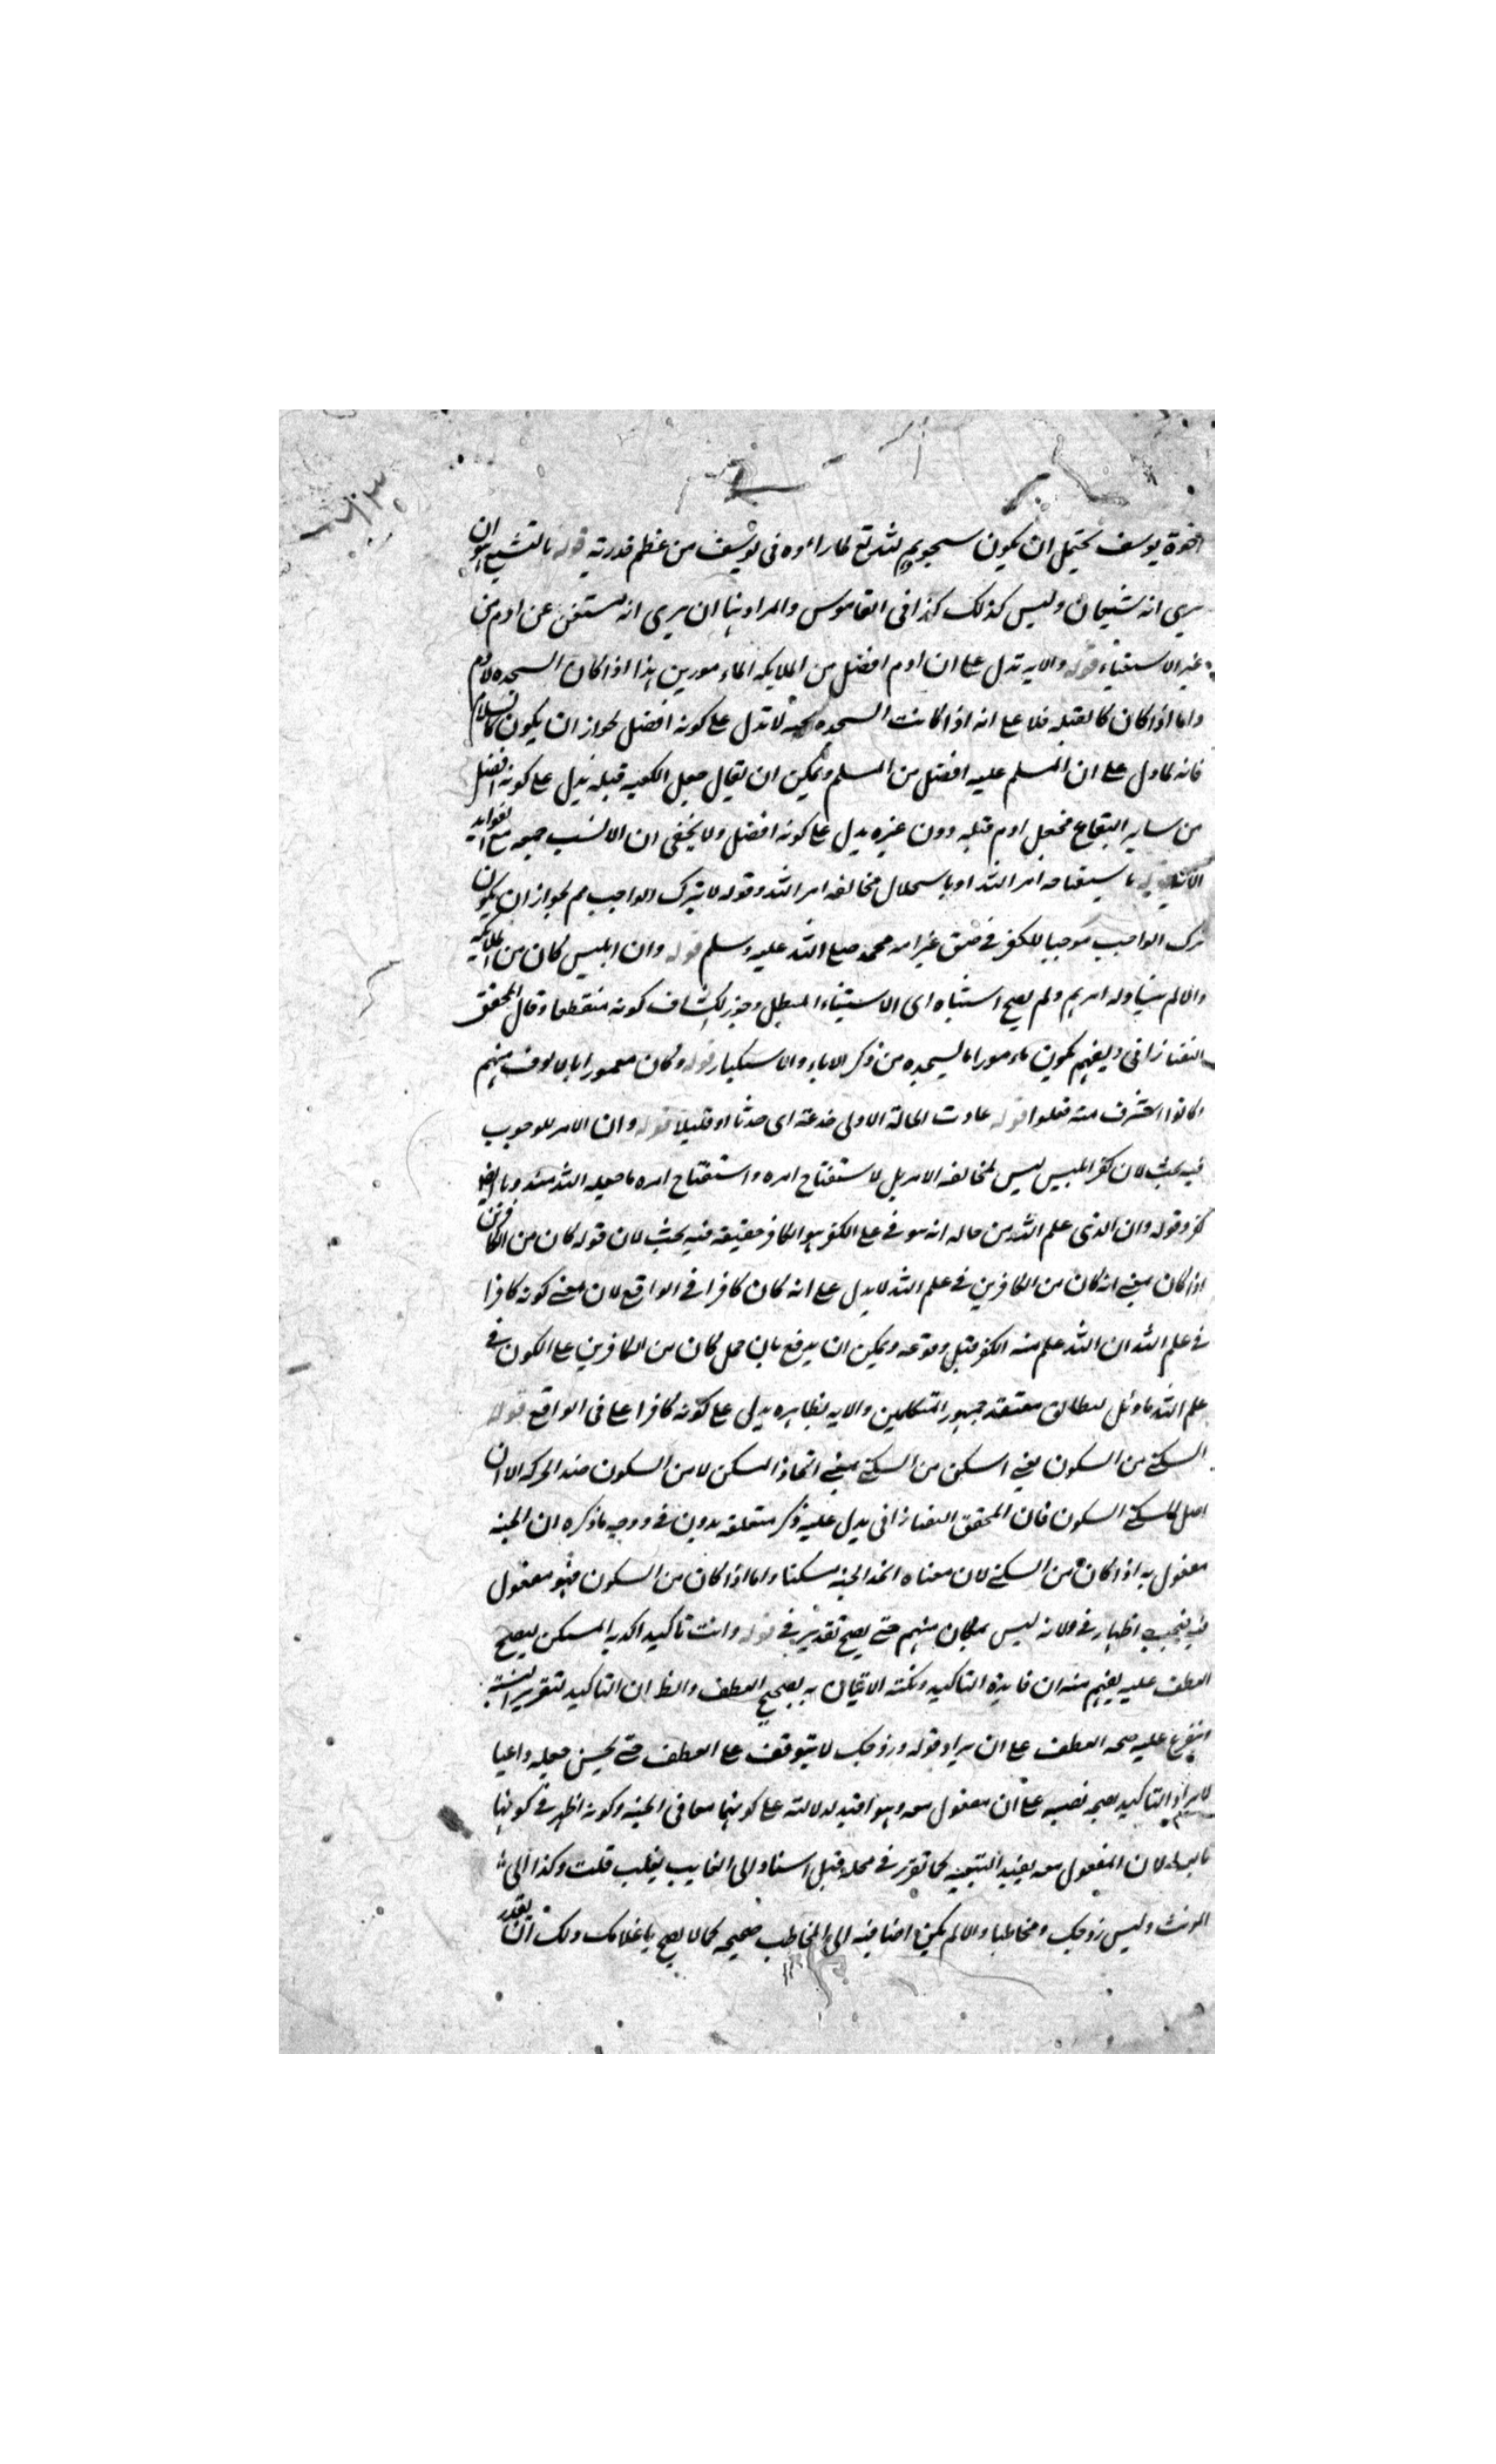 اخوة يوسف يحتمل ان يكون سجودهم لله تع لما راوه فى يوسف من عظم قدرته قوله بالتشبع هو ان
يرى انه شبعان وليس كذلك كذا فى القاموس والمراد هنا ان يرى انه مستغن عن ادم من
غير الاستغناء قوله والايه تدل على ان ادم افضل من الملايكه الماءمورين هذا اذا كان السجده لادم
واما اذا كان كالقبله فلا على انه اذا كانت السجده تحيه لا تدل على كونه افضل لجواز ان يكون كالسلام
فانه لا يدل على ان المسلم عليه افضل من المسلم ويمكن ان يقال جعل الكعبه قبله يدل على كونه افضل
من ساير البقاع فجعل ادم قبله دون غيره يدل على كونه افضل ولا يخفى ان الانسب جمعه مع الفوايد
باستقباحه امر الله او باستحلال مخالفه امر الله وقوله لا بترك الواجب مم لجواز ان يكون
ترك الواجب موجبا للكفر فى حق غير امه محمد صلى الله عليه وسلم قوله وان ابليس كان من الملايكه
والا لم يتناوله امرهم ولم يصح استثناه اى الاستثناء المتصل وجوز الكشاف كونه منقطعا وقال المحقق
التفتازانى ويفهم كونه ماءمورا بالسجده من ذكر الاباء والاستكبار قوله وكان مغمورا بالالوف منهم
قوله عادت الحالة الاولى جذعة اى حدثا او قليلا قوله وان الامر للوجوب
فيه بحث لان كفر ابليس ليس لمخالفه الامر بل لاستقباح امره واستقباح امره ما جعله الله مندوبا ايضا
كفر وقوله وان الذى علم الله من حاله انه يتوفى على الكفر هو الكافر حقيقه فيه بحث لان قوله كان من الكافرين
اذا كان بمعنى انه كان من الكافرين فى علم الله لا يدل على انه كان كافرا فى الواقع لان معنى كونه كافرا
فى علم الله ان الله علم منه الكفر قبل وقوعه ويمكن ان يدفع بان حمل كان من الكافرين على الكون فى
علم الله تاويل ليطابق معتقد جمهور المتكلمين والايه بظاهره يدل على كونه كافرا على فى الواقع قوله
السكنى من السكون يعنى اسكن من السكنى بمعنى اتخاذ المسكن لا من السكون ضد الحركه الا ان
اصل السكنى السكون فان المحقق التفتازانى يدل عليه ذكر متعلقه بدون فى ووجه ما ذكره ان الجنه
مفعول به اذا كان من السكنى لان معناه اتخذ الجنه مسكنا واما اذا كان من السكون فهو مفعول
فيه فيجب اظهار فى ولانه ليس بمكان مبهم حتى يصح تقدير فى قوله وانت تاكيد اكد به المستكن ليصح
العطف عليه يفهم منه ان فايدة التاكيد ونكتة الاتيان به تصحيح العطف والظ ان التاكيد لتقرير النسبة
تفرع عليه صحه العطف على ان ايراد قوله وزوجك لا يتوقف على العطف حتى يحسن جعله داعيا
لايراد التاكيد لصحه نصبه على ان مفعول معه وهو افيد لدلالته على كونهما معا فى الجنه وكونه اظهر فى كونها
تابعه لان المفعول معه يفيد التبعيه كما تقرر فى محله قبل اسناد الى الغايب يغلب قلت وكذا الى
المونث وليس زوجك مخاطبا والا لم يكن اضافته الى المخاطب صحيحه كما لا يصح يا غلامك ولك ان يقدر